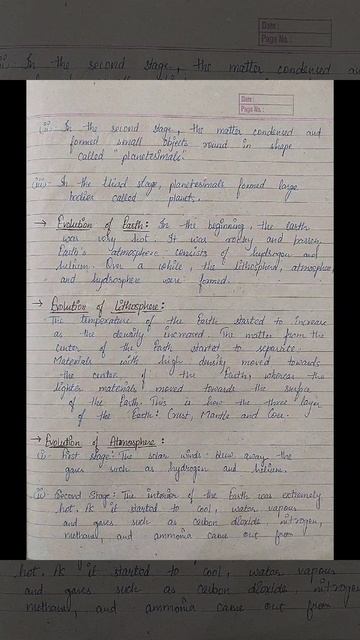 Date :
Page No. :
(ii) In the second stage, the matter condensed and
Date :
Page No. :
(ii) In the second stage, the matter condensed and
formed small objects round in shape
called "planetesimals."
(iii) In the third stage, planetesimals formed large
bodies called planets.
→ Evolution of Earth: In the beginning, the earth
was very hot. It was rocky and barren.
Earth's atmosphere consists of hydrogen and
helium. Over a while, the lithosphere, atmosphere,
and hydrosphere were formed.
→ Evolution of Lithosphere:
The temperature of the Earth started to increase
as the density increased. The matter from the
center of the Earth started to separate.
Materials with high density moved towards
the center of the Earth, whereas the
lighter materials moved towards the surface
of the Earth. This is how the three layer
of the Earth: Crust, Mantle and Core.
→ Evolution of Atmosphere :
(i) First stage: The solar winds blew away the
gases such as hydrogen and helium.
(ii) Second Stage: The interior of the Earth was extremely
hot. As it started to cool, water vapour
and gases such as carbon dioxide, nitrogen,
methane, and ammonia came out from
hot. As it started to cool, water vapour
and gases such as carbon dioxide, nitrogen
methane, and ammonia came out from